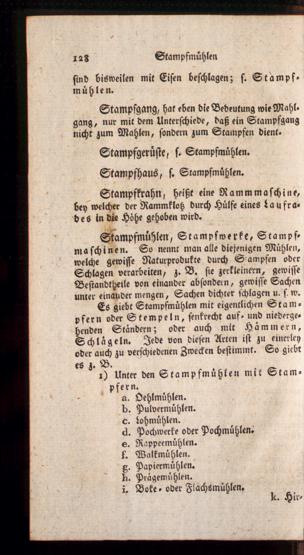 128 Stampfmühlen
sind bisweilen mit Eisen beschlagen; s. Stampf-
mühlen.
Stampfgang, hat eben die Bedeutung wie Mahl-
gang, nur mit dem Unterschiede, daß ein Stampfgang
nicht zum Mahlen, sondern zum Stampfen dient.
Stampfgerüste, s. Stampfmühlen.
Stampfhaus, s. Stampfmühlen.
Stampfkrahn, heißt eine Rammmaschine,
bey welcher der Rammklotz durch Hülfe eines Laufra-
des in die Höhe gehoben wird.
Stampfmühlen, Stampfwerke, Stampf-
maschinen. So nennt man alle diejenigen Mühlen,
welche gewisse Naturprodukte durch Stampfen oder
Schlagen verarbeiten, z. B. sie zerkleinern, gewisse
Bestandtheile von einander absondern, gewisse Sachen
unter einander mengen, Sachen dichter schlagen u. s. w.
Es giebt Stampfmühlen mit eigentlichen Stam-
pfern oder Stempeln, senkrecht auf- und niederge-
henden Ständern; oder auch mit Hämmern,
Schlägeln. Jede von diesen Arten ist zu einerley
oder auch zu verschiedenen Zwecken bestimmt. So giebt
es z. B.
1) Unter den Stampfmühlen mit Stam-
pfern.
a. Oehlmühlen.
b. Pulvermühlen.
c. Lohmühlen.
d. Pochwerke oder Pochmühlen.
e. Rappeemühlen.
f. Walkmühlen.
g. Papiermühlen.
h. Prägemühlen.
i. Boke- oder Flachsmühlen.
k. Hir-